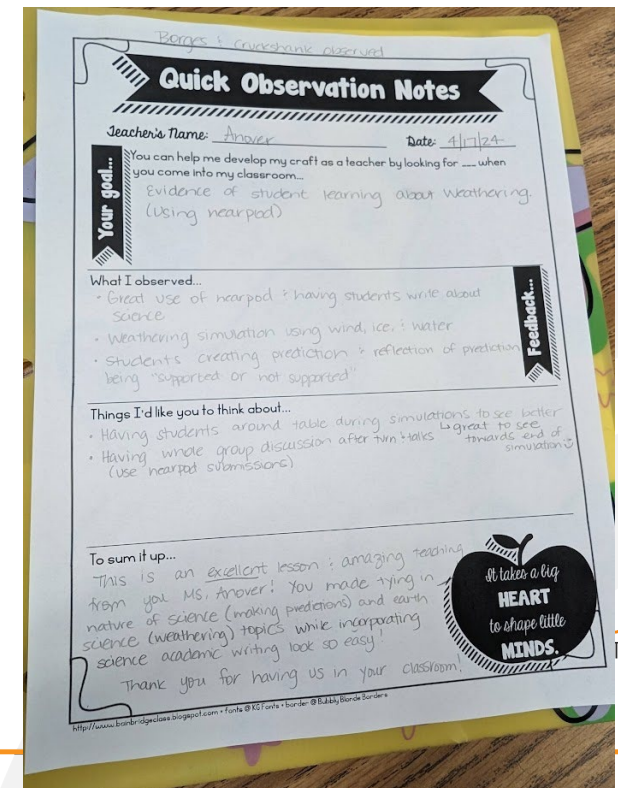 Borges & Cruickshank observed
Quick Observation Notes
Teacher's Name: Anover Date: 4/17/24
Your goal...
You can help me develop my craft as a teacher by looking for ___ when
you come into my classroom...
Evidence of student learning about weathering.
(using nearpod)
What I observed...
Feedback...
• Great use of nearpod & having students write about
science
• Weathering simulation using wind, ice, & water
• Students creating prediction & reflection of prediction
being "supported or not supported"
Things I'd like you to think about...
• Having students around table during simulations to see better
↳ great to see
towards end of
simulation ☺
• Having whole group discussion after turn & talks
(use nearpod submissions)
To sum it up...
This is an excellent lesson & amazing teaching
from you Ms. Anover! You made tying in
nature of science (making predictions) and earth
science (weathering) topics while incorporating
science academic writing look so easy!
Thank you for having us in your classroom!
It takes a big
HEART
to shape little
MINDS.
http://www.bainbridgeclass.blogspot.com • fonts @ KG Fonts • border @ Bubbly Blonde Borders